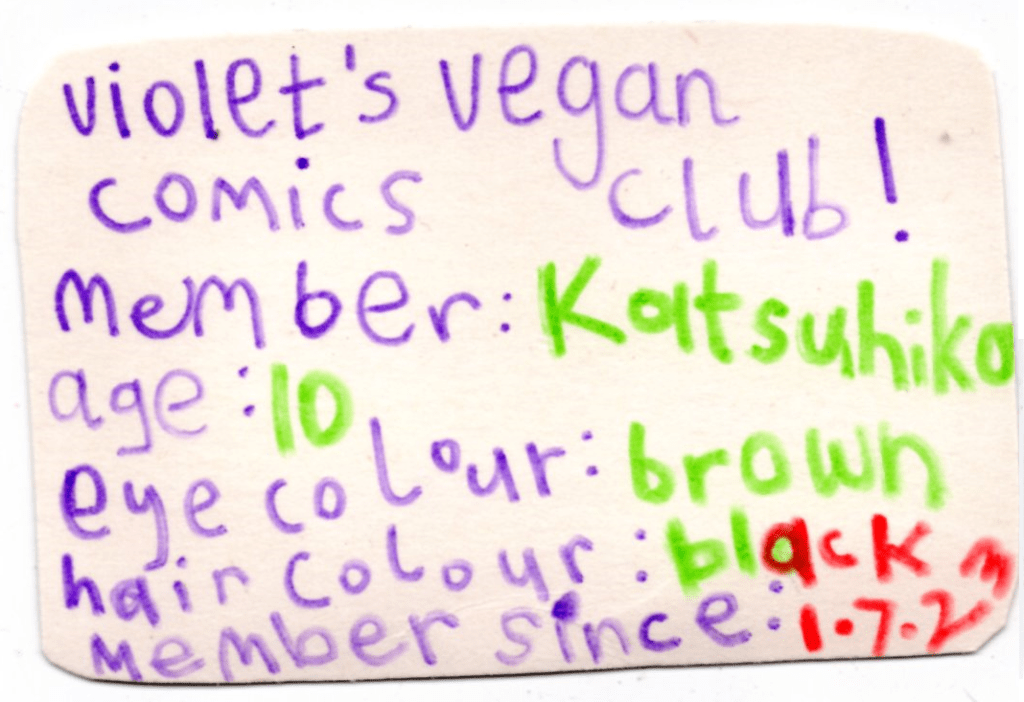 violet's vegan
comics club!
member: Katsuhiko
age: 10
eye colour: brown
hair colour: black
member since: 1.7.2